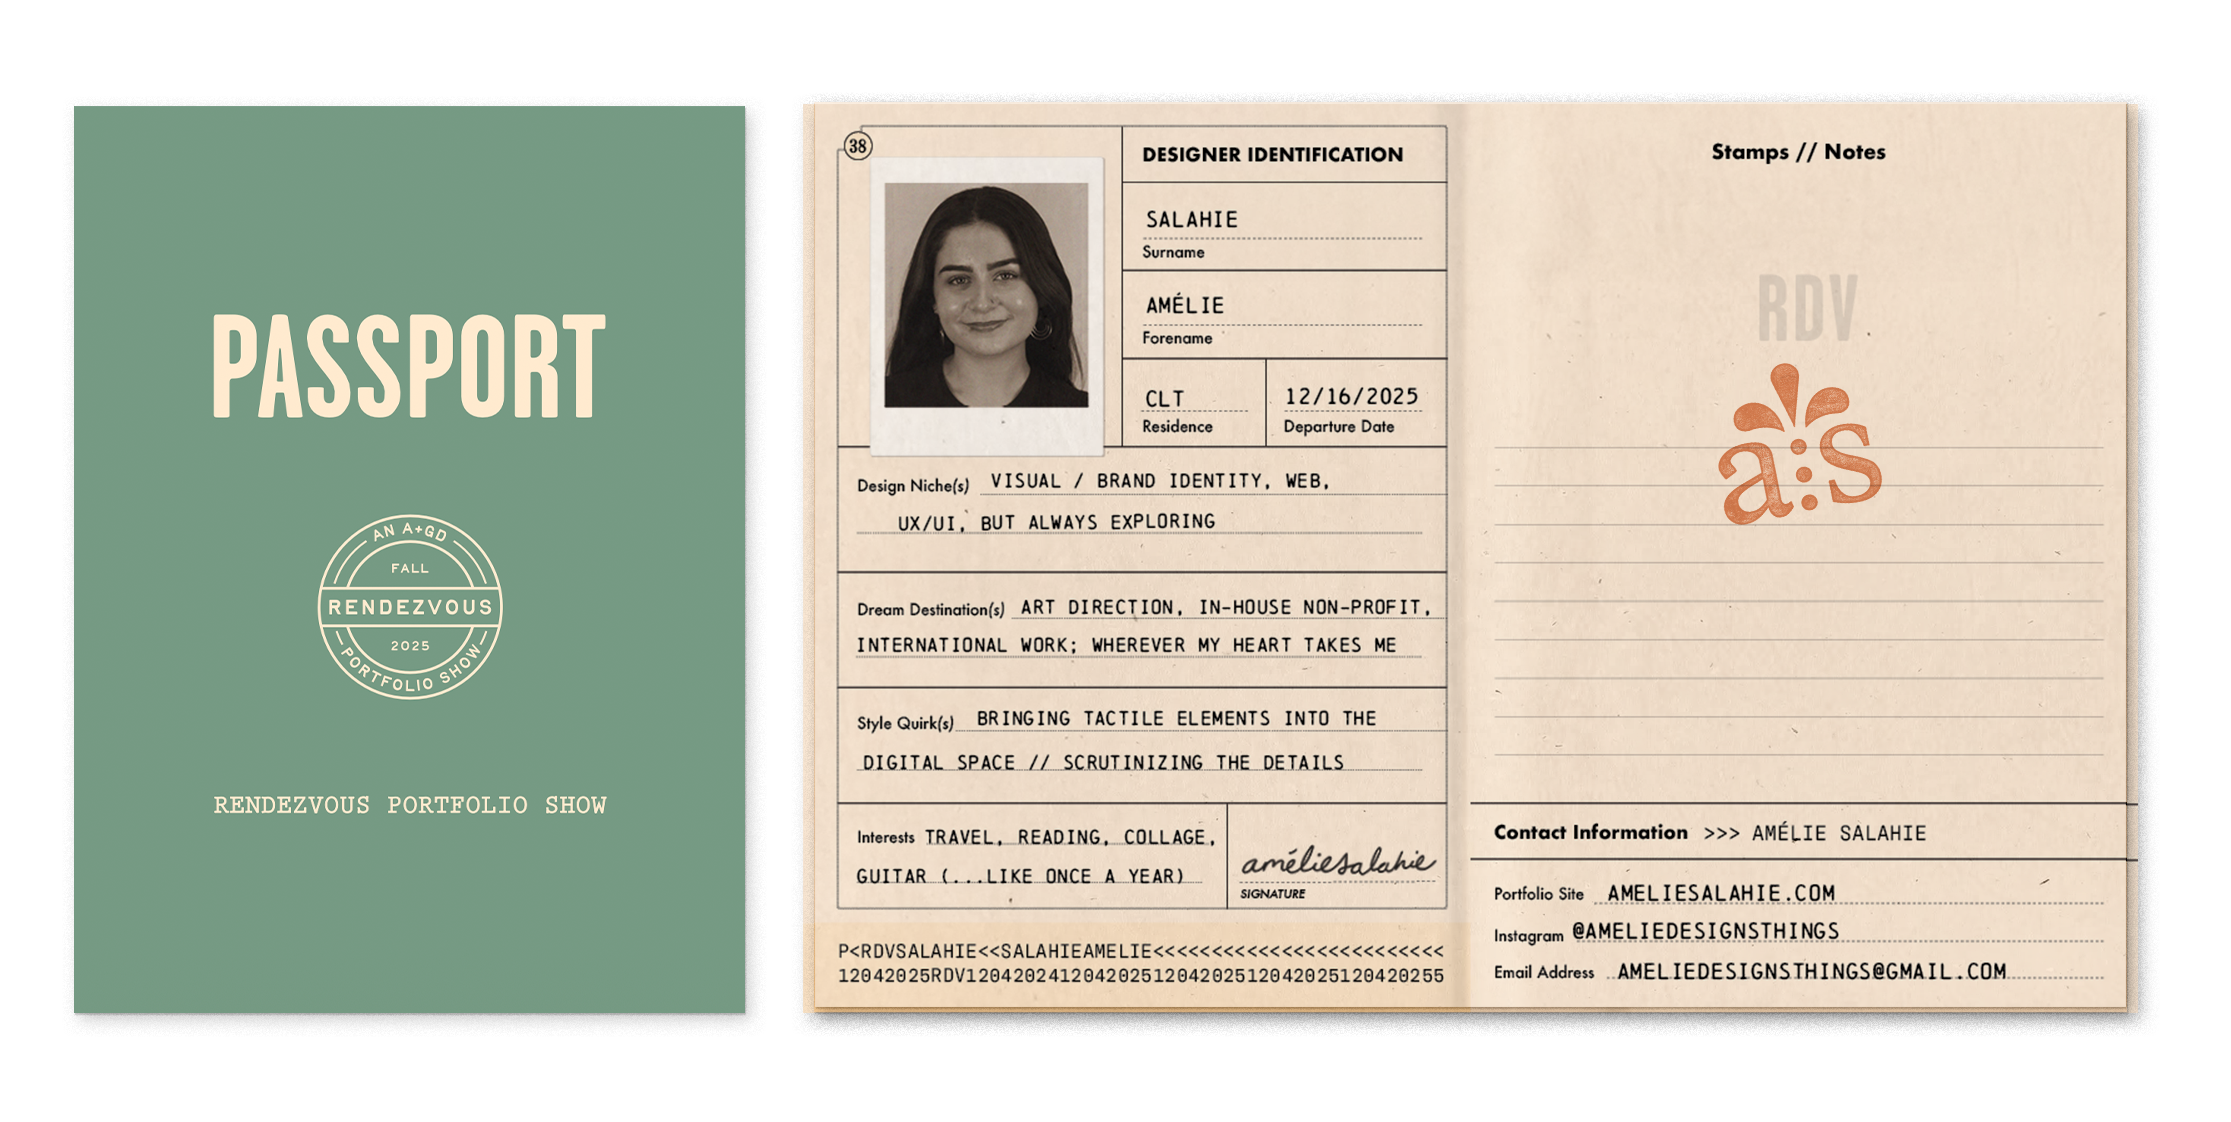 PASSPORT
AN A+GD
FALL
RENDEZVOUS
2025
PORTFOLIO SHOW
RENDEZVOUS PORTFOLIO SHOW
38
DESIGNER IDENTIFICATION
SALAHIE
Surname
AMÉLIE
Forename
CLT
Residence
12/16/2025
Departure Date
Design Niche(s) VISUAL / BRAND IDENTITY, WEB,
UX/UI, BUT ALWAYS EXPLORING
Dream Destination(s) ART DIRECTION, IN-HOUSE NON-PROFIT,
INTERNATIONAL WORK; WHEREVER MY HEART TAKES ME
Style Quirk(s) BRINGING TACTILE ELEMENTS INTO THE
DIGITAL SPACE // SCRUTINIZING THE DETAILS
Interests TRAVEL, READING, COLLAGE,
GUITAR (...LIKE ONCE A YEAR)
améliesalahie
SIGNATURE
P<RDVSALAHIE<<SALAHIEAMELIE<<<<<<<<<<<<<<<<<<<<<<<<<
12042025RDV12042024120420251204202512042025120420255
Stamps // Notes
RDV
a:s
Contact Information >>> AMÉLIE SALAHIE
Portfolio Site AMELIESALAHIE.COM
Instagram @AMELIEDESIGNSTHINGS
Email Address AMELIEDESIGNSTHINGS@GMAIL.COM